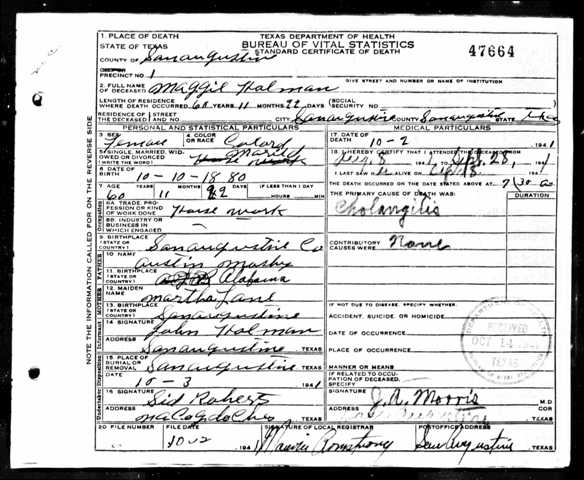 TEXAS DEPARTMENT OF HEALTH
BUREAU OF VITAL STATISTICS
STANDARD CERTIFICATE OF DEATH
47664
1 PLACE OF DEATH
STATE OF TEXAS
COUNTY OF San augustine
PRECINCT NO. 1
GIVE STREET AND NUMBER OR NAME OF INSTITUTION
2. FULL NAME OF DECEASED Holman
LENGTH OF RESIDENCE WHERE DEATH OCCURRED 60 YEARS 11 MONTHS 22 DAYS
SOCIAL SECURITY NO.
RESIDENCE OF THE DECEASED STREET AND NO. CITY San augustine COUNTY STATE
PERSONAL AND STATISTICAL PARTICULARS
MEDICAL PARTICULARS
3 SEX Female 4 COLOR OR RACE Colard
5 SINGLE, MARRIED, WIDOWED OR DIVORCED (WRITE THE WORD)
6 DATE OF BIRTH 10-10-1880
7 AGE YEARS MONTHS DAYS IF LESS THAN 1 DAY
60 11 22 HOURS MIN
8A TRADE, PROFESSION OR KIND OF WORK DONE House work
8B INDUSTRY OR BUSINESS IN WHICH ENGAGED
9 BIRTHPLACE (STATE OR COUNTRY) San augustine Co
10 NAME austin
11 BIRTHPLACE (STATE OR COUNTRY) Alabama
12 MAIDEN NAME Martha Jane
13 BIRTHPLACE (STATE OR COUNTRY) San augustine
14 SIGNATURE John Holman
ADDRESS San augustine TEXAS
15 PLACE OF BURIAL OR REMOVAL San augustine TEXAS
DATE 10-3 1941
16 SIGNATURE Sid Roberts
ADDRESS TEXAS
17. DATE OF DEATH 10-2 1941
18 I HEREBY CERTIFY THAT I ATTENDED THE DECEASED FROM
Aug. 8 1941 TO Sept. 28, 1941
I LAST SAW ALIVE ON
THE DEATH OCCURRED ON THE DATE STATED ABOVE AT 7:30 M
THE PRIMARY CAUSE OF DEATH WAS: DURATION
Cholangitis
CONTRIBUTORY CAUSES WERE: None
IF NOT DUE TO DISEASE, SPECIFY WHETHER:
ACCIDENT, SUICIDE, OR HOMICIDE
DATE OF OCCURRENCE
PLACE OF OCCURRENCE
MANNER OR MEANS
IF RELATED TO OCCUPATION OF DECEASED, SPECIFY
SIGNATURE J. A. Morris M.D
ADDRESS TEXAS
RECEIVED
OCT 14
TEXAS
20 FILE NUMBER FILE DATE SIGNATURE OF LOCAL REGISTRAR POSTOFFICE ADDRESS
10-2 1941 Armstrong San Augustine TEXAS
NOTE THE INFORMATION CALLED FOR ON THE REVERSE SIDE